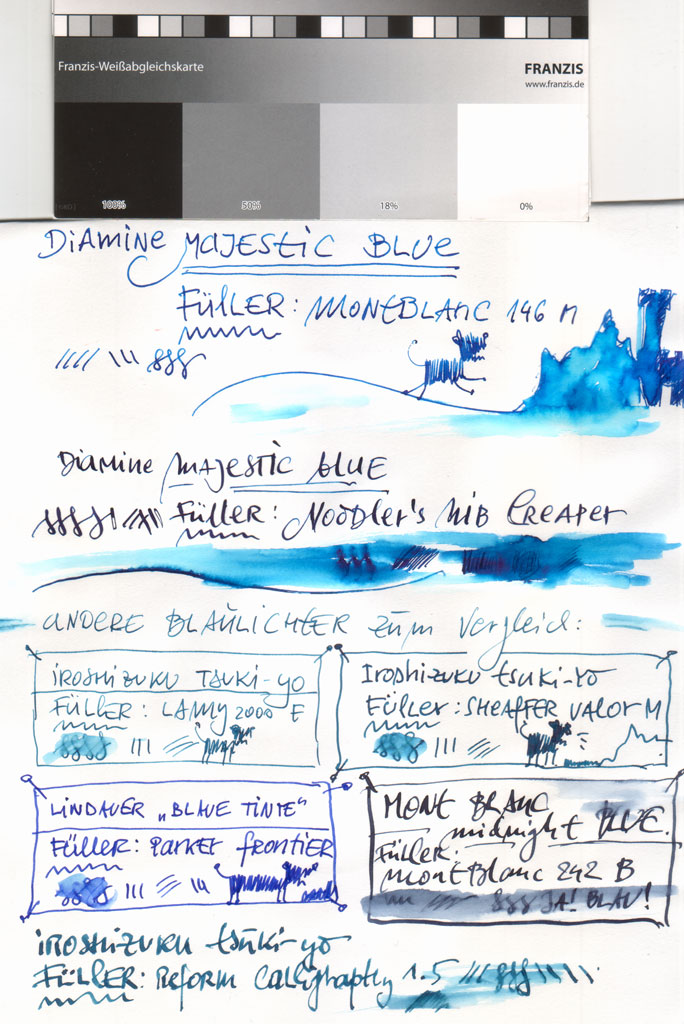 Franzis-Weißabgleichskarte
FRANZIS
www.franzis.de
100%
50%
18%
0%
Diamine Majestic Blue
Füller: Montblanc 146 M
Diamine Majestic Blue
Füller: Noodler's Nib Creaper
andere Blaulichter zum Vergleich:
Iroshizuku Tsuki-yo
Füller: Lamy 2000 F
Iroshizuku tsuki-yo
Füller: Sheaffer Valor M
Lindauer „Blaue Tinte"
Füller: Parker Frontier
Mont Blanc
midnight Blue.
Füller:
MontBlanc 242 B
JA! BLAU!
Iroshizuku tsuki-yo
Füller: Reform Calligraphy 1.5